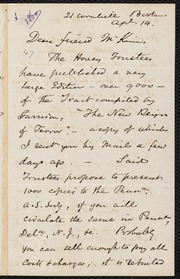 21 Cornhill Boston
Apl. 14.
Dear friend McKim,
The Hovey Trustees
have published a very
large Edition - over 9,000 -
of the Tract compiled by
Garrison, "The New Reign
of Terror." - a copy of which
I sent you by Mail a few
days ago. — Said
Trustees propose to present
1000 copies to the Penna.
A.S. Socy, if you will
circulate the same in Penna,
Del., N.J., &c. Probably
you can sell enough to pay all
costs & charges; it is retailed